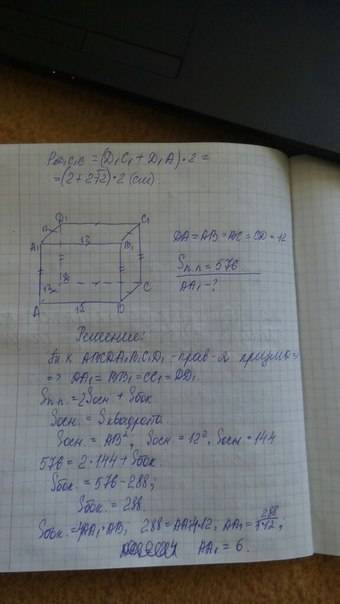 = (D₁C₁ + D₁A) · 2 =
= (2 + 2√2) · 2 (см).
D₁ C₁
12
A₁ 12 B₁
12 C
A 12 D
DA = AB = BC = CD = 12
Sп.п. = 576
AA₁ - ?
Решение:
Т. к ABCDA₁B₁C₁D₁ - прав-я призма =
=> AA₁ = BB₁ = CC₁ = DD₁
Sп.п. = 2Sосн + Sбок
Sосн. = Sквадрата
Sосн. = AB², Sосн. = 12², Sосн = 144
576 = 2 · 144 + Sбок.
Sбок. = 576 - 288;
Sбок. = 288.
Sбок. = 4AA₁ · AB, 288 = AA₁ 4 · 12, AA₁ = 288/4·12;
AA₁ = 6.